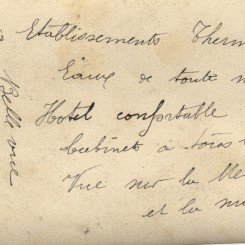 Etablissements Therm
Eaux de toute n
Hotel confortable
Cabinets à
Vue sur la Me
et la
Belle vue